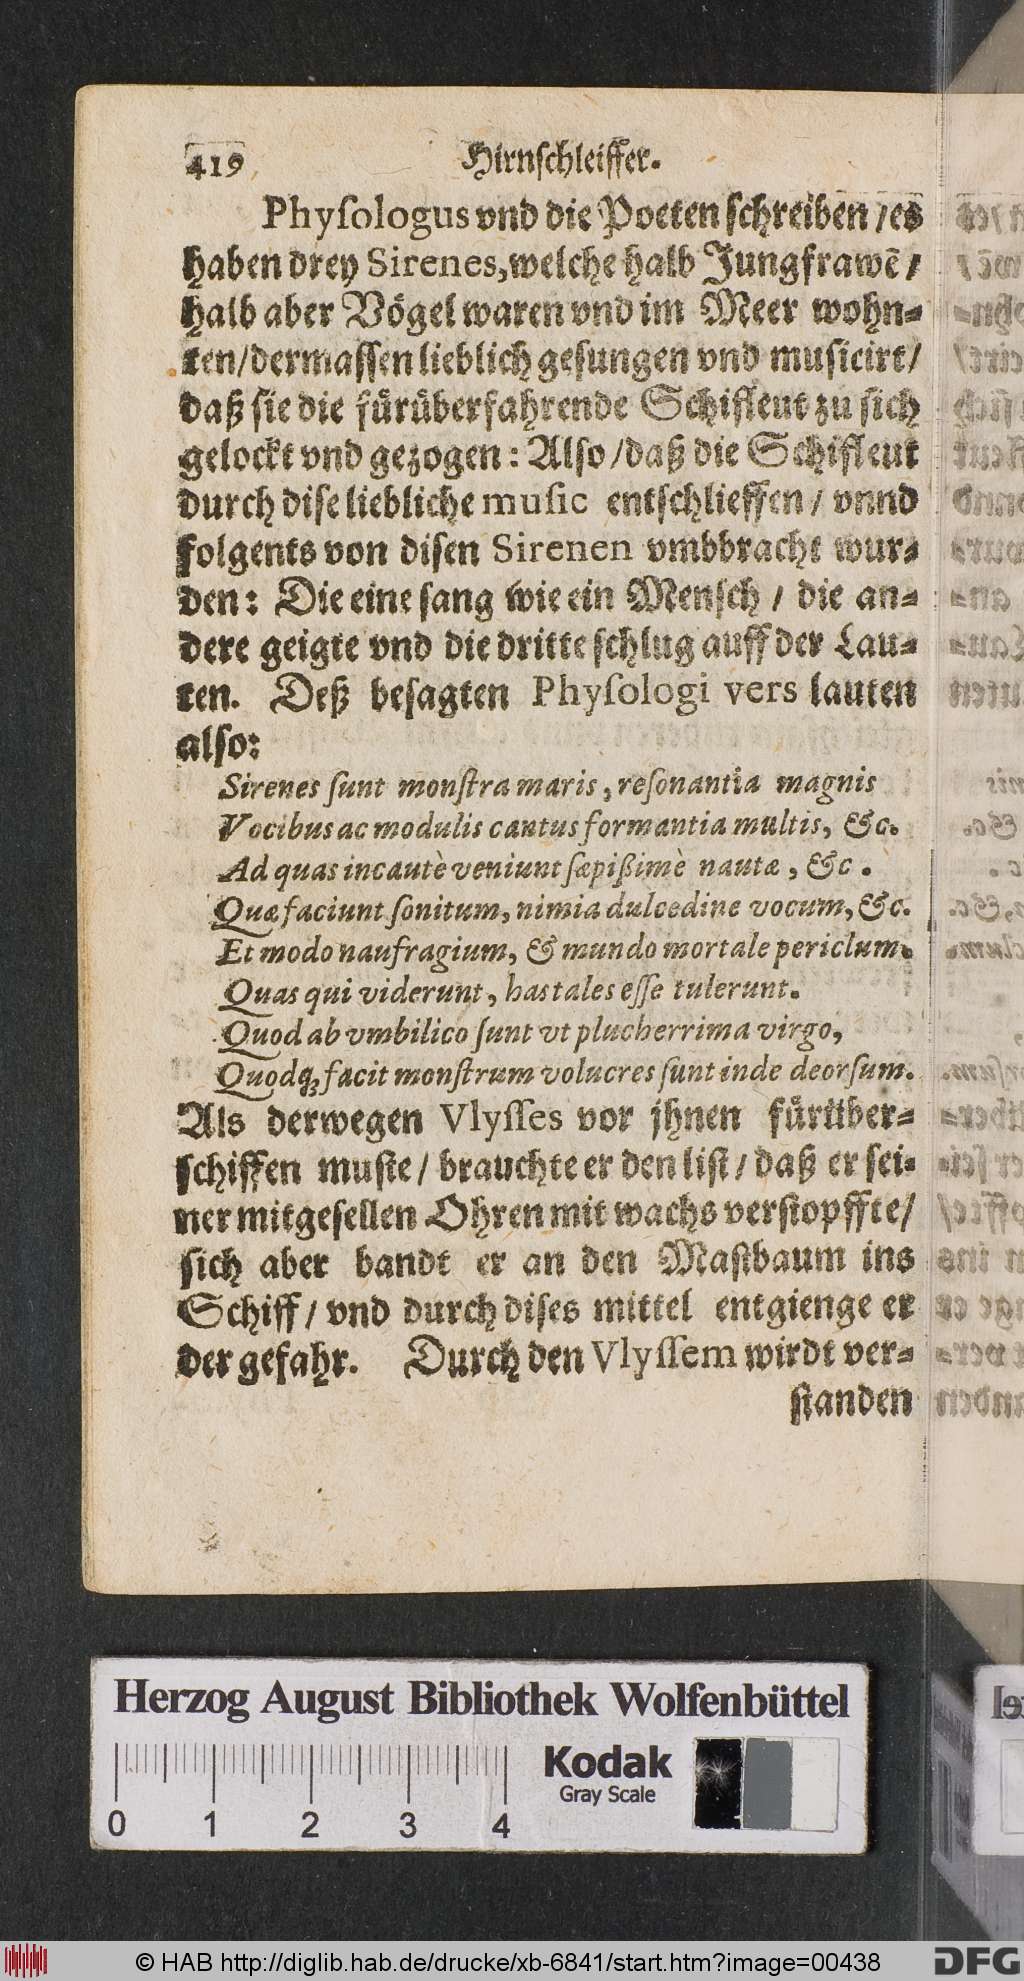 419 Hirnſchleiffer.
Phyſologus vnd die Poeten ſchreiben / es
haben drey Sirenes, welche halb Jungfrawē /
halb aber Vögel waren vnd im Meer wohn⸗
ten / dermaſſen lieblich geſungen vnd muſicirt /
daß ſie die fürüberfahrende Schifleut zu ſich
gelockt vnd gezogen: Alſo / daß die Schifleut
durch diſe liebliche muſic entſchlieffen / vnnd
folgents von diſen Sirenen vmbbracht wur⸗
den: Die eine ſang wie ein Menſch / die an⸗
dere geigte vnd die dritte ſchlug auff der Lau⸗
ten. Deß beſagten Phyſologi vers lauten
alſo:
Sirenes ſunt monſtra maris, reſonantia magnis
Vocibus ac modulis cantus formantia multis, &c.
Ad quas incautè veniunt ſæpißimè nautæ, &c.
Quæ faciunt ſonitum, nimia dulcedine vocum, &c.
Et modo naufragium, & mundo mortale periclum.
Quas qui viderunt, has tales eſſe tulerunt.
Quod ab vmbilico ſunt vt plucherrima virgo,
Quodq; facit monſtrum volucres ſunt inde deorſum.
Als derwegen Vlyſſes vor jhnen fürüber⸗
ſchiffen muſte / brauchte er den liſt / daß er ſei⸗
ner mitgeſellen Ohren mit wachs verſtopffte /
ſich aber bandt er an den Maſtbaum ins
Schiff / vnd durch diſes mittel entgienge er
der gefahr. Durch den Vlyſſem wirdt ver⸗
ſtanden
Herzog August Bibliothek Wolfenbüttel
Kodak
Gray Scale
0 1 2 3 4
© HAB http://diglib.hab.de/drucke/xb-6841/start.htm?image=00438
DFG